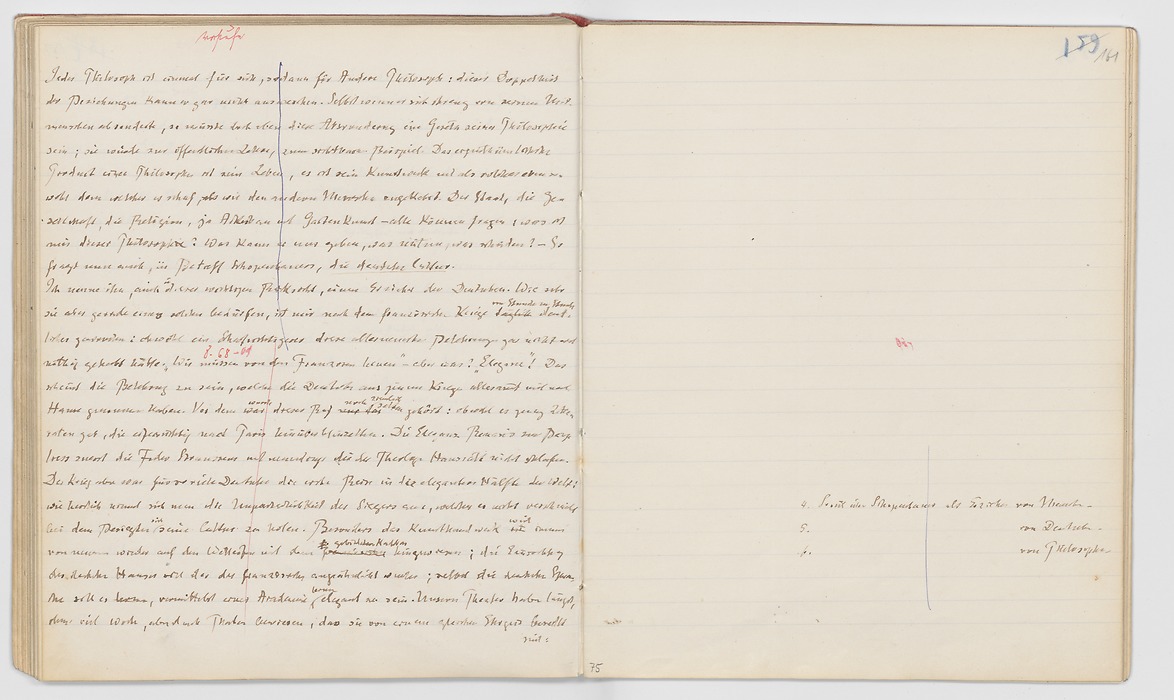 Jeder Philosoph ist einmal für sich, sodann für Andere Philosoph: dieser Doppelheit
der Beziehungen kann er gar nicht ausweichen. Selbst wenn er sich streng von seinen Mit-
menschen absonderte, so müsste doch eben diese Absonderung ein Gesetz seiner Philosophie
sein; sie würde zur öffentlichen Lehre, zum sichtbaren Beispiel. Das eigenthümlichste
Product eines Philosophen ist sein Leben, es ist sein Kunstwerk und als solches eben so-
wohl dem welcher es schuf, als wie den andern Menschen zugekehrt. Der Staat, die Ge-
sellschaft, die Religion, ja Ackerbau und Gartenkunst – alle können fragen: was ist
uns dieser Philosoph? Was kann er uns geben, was nützen, was schaden? – So
fragt nun auch, in Betreff Schopenhauers, die deutsche Cultur.
Ich nenne ihn, auch in dieser Rücksicht, einen Erzieher der Deutschen. Wie sehr
sie aber gerade eines solchen bedürfen, ist mir nach dem französischen Kriege von Stunde zu Stunde deut-
licher geworden: obwohl ein Schärfersichtiger diese allerneueste Belehrung gar nicht erst
8-68-09
nöthig gehabt hätte. „Wir müssen von den Franzosen lernen" – aber was? „Eleganz"! Das
scheint die Belehrung zu sein, welche die Deutschen aus jenem Kriege allesammt mit nach
Hause genommen haben. Vor dem wurde dieser Ruf noch ziemlich selten gehört: obwohl es genug Litte-
raten gab, die eifersüchtig nach Paris hinüberschielten. Die Eleganz Renan's zum Beisp.
liess zuerst die Feder Straussens und neuerdings die des Theologen Hausrath nicht schlafen.
Der Krieg aber war für so viele Deutsche die erste Reise in die elegantere Hälfte der Welt:
wie herrlich nimmt sich nun die Unparteilichkeit des Siegers aus, welcher es nicht verschmäht
bei dem Besiegten sich seine Cultur zu holen. Besonders das Kunsthandwerk wird immer
von neuem wieder auf den Wetteifer mit dem gebildeten Nachbar hingewiesen; die Einrichtung
des deutschen Hauses soll der des französischen angeähnlicht werden; selbst die deutsche Spra-
che soll es lernen, vermittelst einer Akademie eleganter zu sein. Unsere Theater haben längst,
ohne viel Worte, aber durch Thaten bewiesen, dass sie von einem gleichen Ehrgeiz beseelt
sind:
159
161
4. Somit über Schopenhauer als Erzieher von Menschen
5. von Deutschen
6. von Philosophen
75